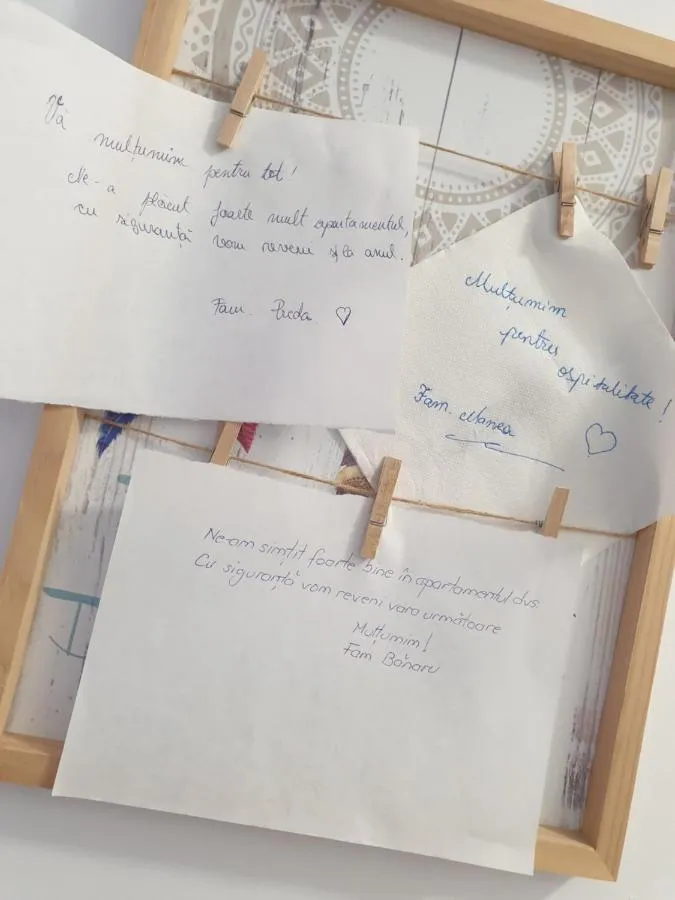 Vă
mulțumim pentru tot!
Ne-a plăcut foarte mult apartamentul,
cu siguranță vom reveni și la anul.
Fam. Preda
Mulțumim
pentru
ospitalitate!
Fam. Manea
Ne-am simțit foarte bine în apartamentul dvs.
Cu siguranță vom reveni vara următoare
Mulțumim!
Fam Bănaru